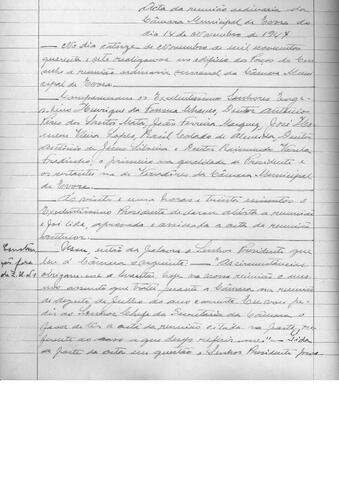 Acta da reunião ordinária da
Câmara Municipal de Evora do
dia 14 de Novembro de 1947
— No dia catorze de Novembro de mil novecentos
quarenta e sete realizou-se no edificio dos Paços do Con-
celho a reunião ordinaria semanal da Câmara Muni-
cipal de Evora.
Compareceram os Excelentissimos Senhores Enge-
nheiro Henrique da Fonseca Chaves, Doutor
dos Santos Mota, João Ferreira Marques, José
Vieira Lopes, Brasil de Almeida, Doutor
António de Jesus Silveira e Doutor Raimundo
o primeiro na qualidade de Presidente e
os restantes na de Vereadores da Câmara Municipal
de Evora.
Ás vinte e uma horas e trinta minutos o
Excelentissimo Presidente declarou aberta a reunião
e foi lida, aprovada e assinada a acta da reunião
anterior.
fora
Usou então da palavra o Senhor Presidente que
leu á Câmara o seguinte: — "As circunstancias
obrigam-me a hoje na nossa reunião o mes-
mo assunto que tratei perante a Câmara na reunião
de dezoito de Julho do ano corrente. Eu vou pe-
dir ao Senhor Chefe da Secretaria da Câmara o
favor de ler a acta da reunião citada na parte re-
ferente ao caso a que desejo referir-me" — Lida
a parte da acta em questão o Senhor Presidente